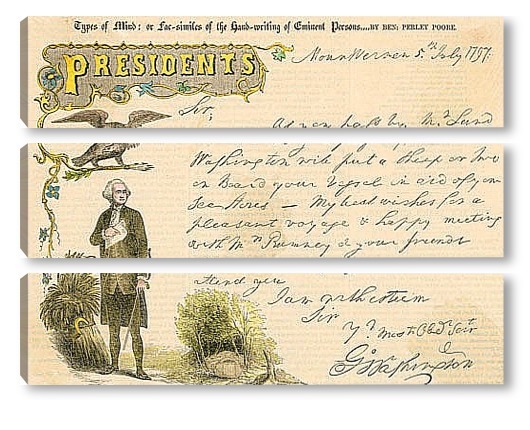 Types of Mind: or Fac-similes of the Hand-writing of Eminent Persons....BY BEN: PERLEY POORE.
PRESIDENTS
Mount Vernon 5th July 1797.
Sir,
As you pass by, Mr Lund
Washington will put a Sheep or two
on Board your Vessel in aid of your
Sea Stores — My best wishes for a
pleasant voyage & happy meeting
with Mrs Rumney & your friends
attend you
I am with esteem
Sir
Yr. Most Obedt Servt
Go Washington